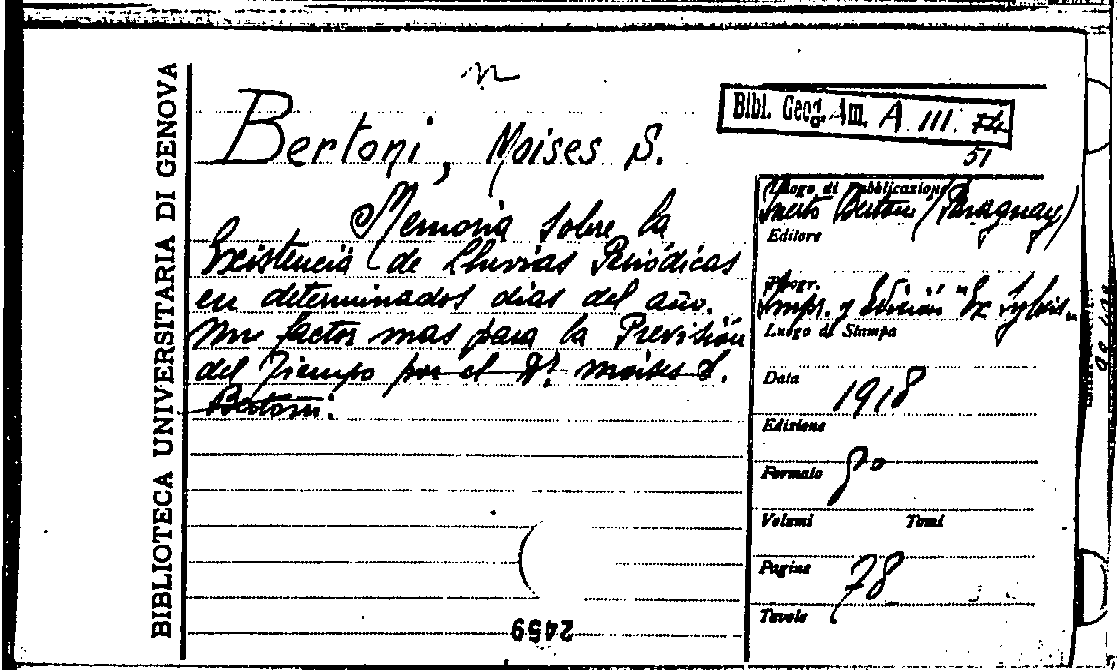 BIBLIOTECA UNIVERSITARIA DI GENOVA
n
Bertoni, Moises S.
Bibl. Geog. Am. A III. 74
51
Memoria Sobre la
Existencia de Lluvias Periódicas
en determinados dias del año.
Un factor mas para la Previsión
del Tiempo por el Dr. Moises S.
Bertoni.
Luogo di Pubblicazione
Puerto Bertoni (Paraguay)
Editore
Impr. y Edición "Ex sylvis"
Luogo di Stampa
Data 1918
Edizione
Formato 8º
Volumi Tomi
Pagine 78
Tavole
2459